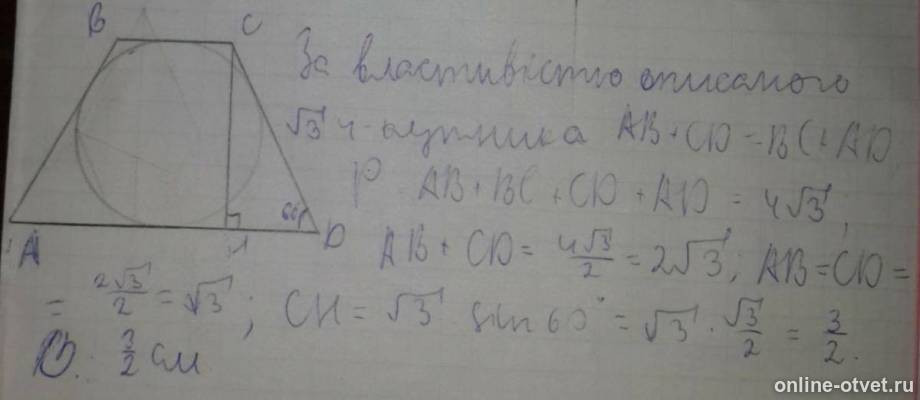 B C
За властивістю описаного
√3 4-кутника AB + CD = BC + AD
P AB + BC + CD + AD = 4√3;
60°
A H D
AB + CD = 4√3/2 = 2√3; AB = CD =
= 2√3/2 = √3; CH = √3 sin 60° = √3 · √3/2 = 3/2.
3/2 см
online-otvet.ru